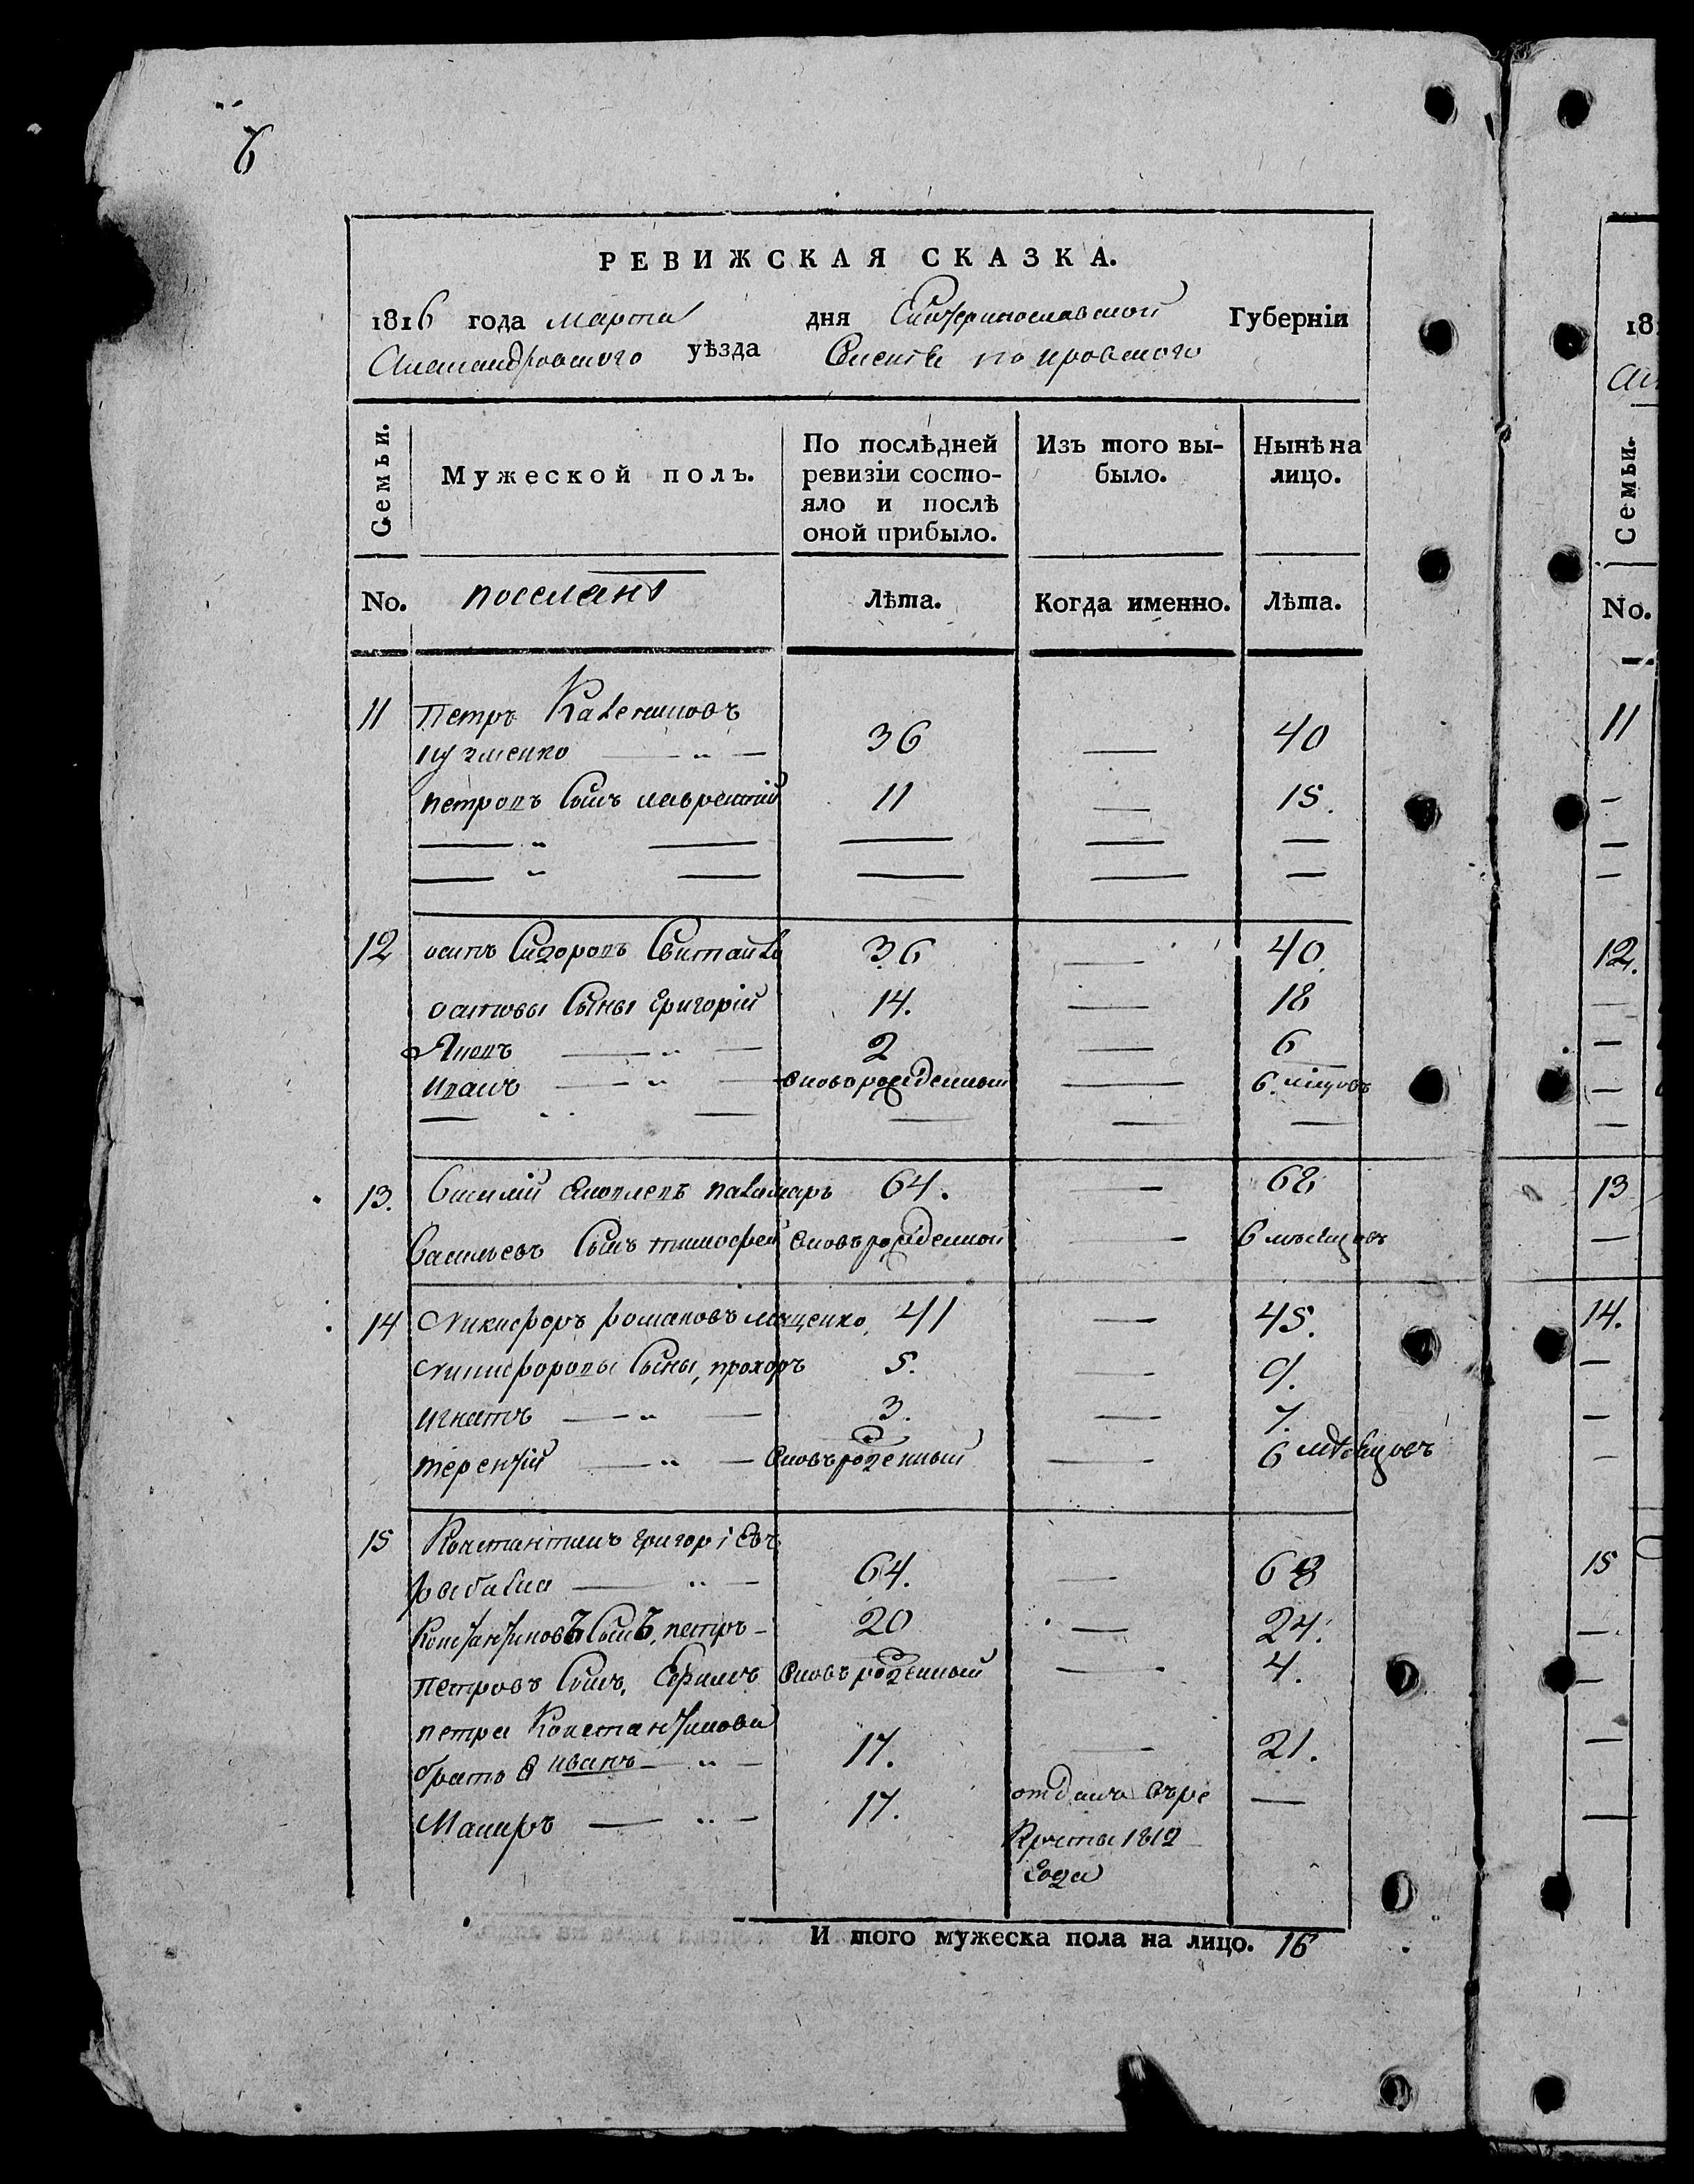 6
РЕВИЖСКАЯ СКАЗКА.
1816 года марта дня Екатеринославской Губернiи
Александровского уѣзда покровского
Семьи.
Мужеской полъ.
По послѣдней ревизiи состо-
яло и послѣ
оной прибыло.
Изъ того вы-
было.
Нынѣ на
лицо.
No. поселянъ Лѣта. Когда именно. Лѣта.
11 Петръ
кузменко 36 — 40
петровъ сынъ лаврентiй 11 — 15.
12 осипъ Сидоровъ 36 — 40
осиповы сыны григорiй 14. — 18
Яковъ 2 — 6
иванъ вновьрожденный — 6. мцовъ
13. Василiй паламаръ 64. — 68
Васильевъ сынъ тимофей вновърожденной — 6 мѣсяцовъ
14 Никифоръ романовъ маценко 41 — 45.
Никифоровы сыны, прохоръ 5. — 9.
игнатъ 3. — 7.
терентiй вновърозденный — 6 мѣсяцовъ
15 Константинъ григорiевъ
рыбалка 64. — 68
Константиновъ сынъ, петръ 20 — 24.
петровъ сынъ, Ефимъ вновърозденный — 4.
петра Константинова
братъ иванъ 17. — 21.
Макаръ 17. отданъ въре —
круты 1812
года
И того мужеска пола на лицо. 16
18
Семьи.
No.
11
12.
13
14.
15